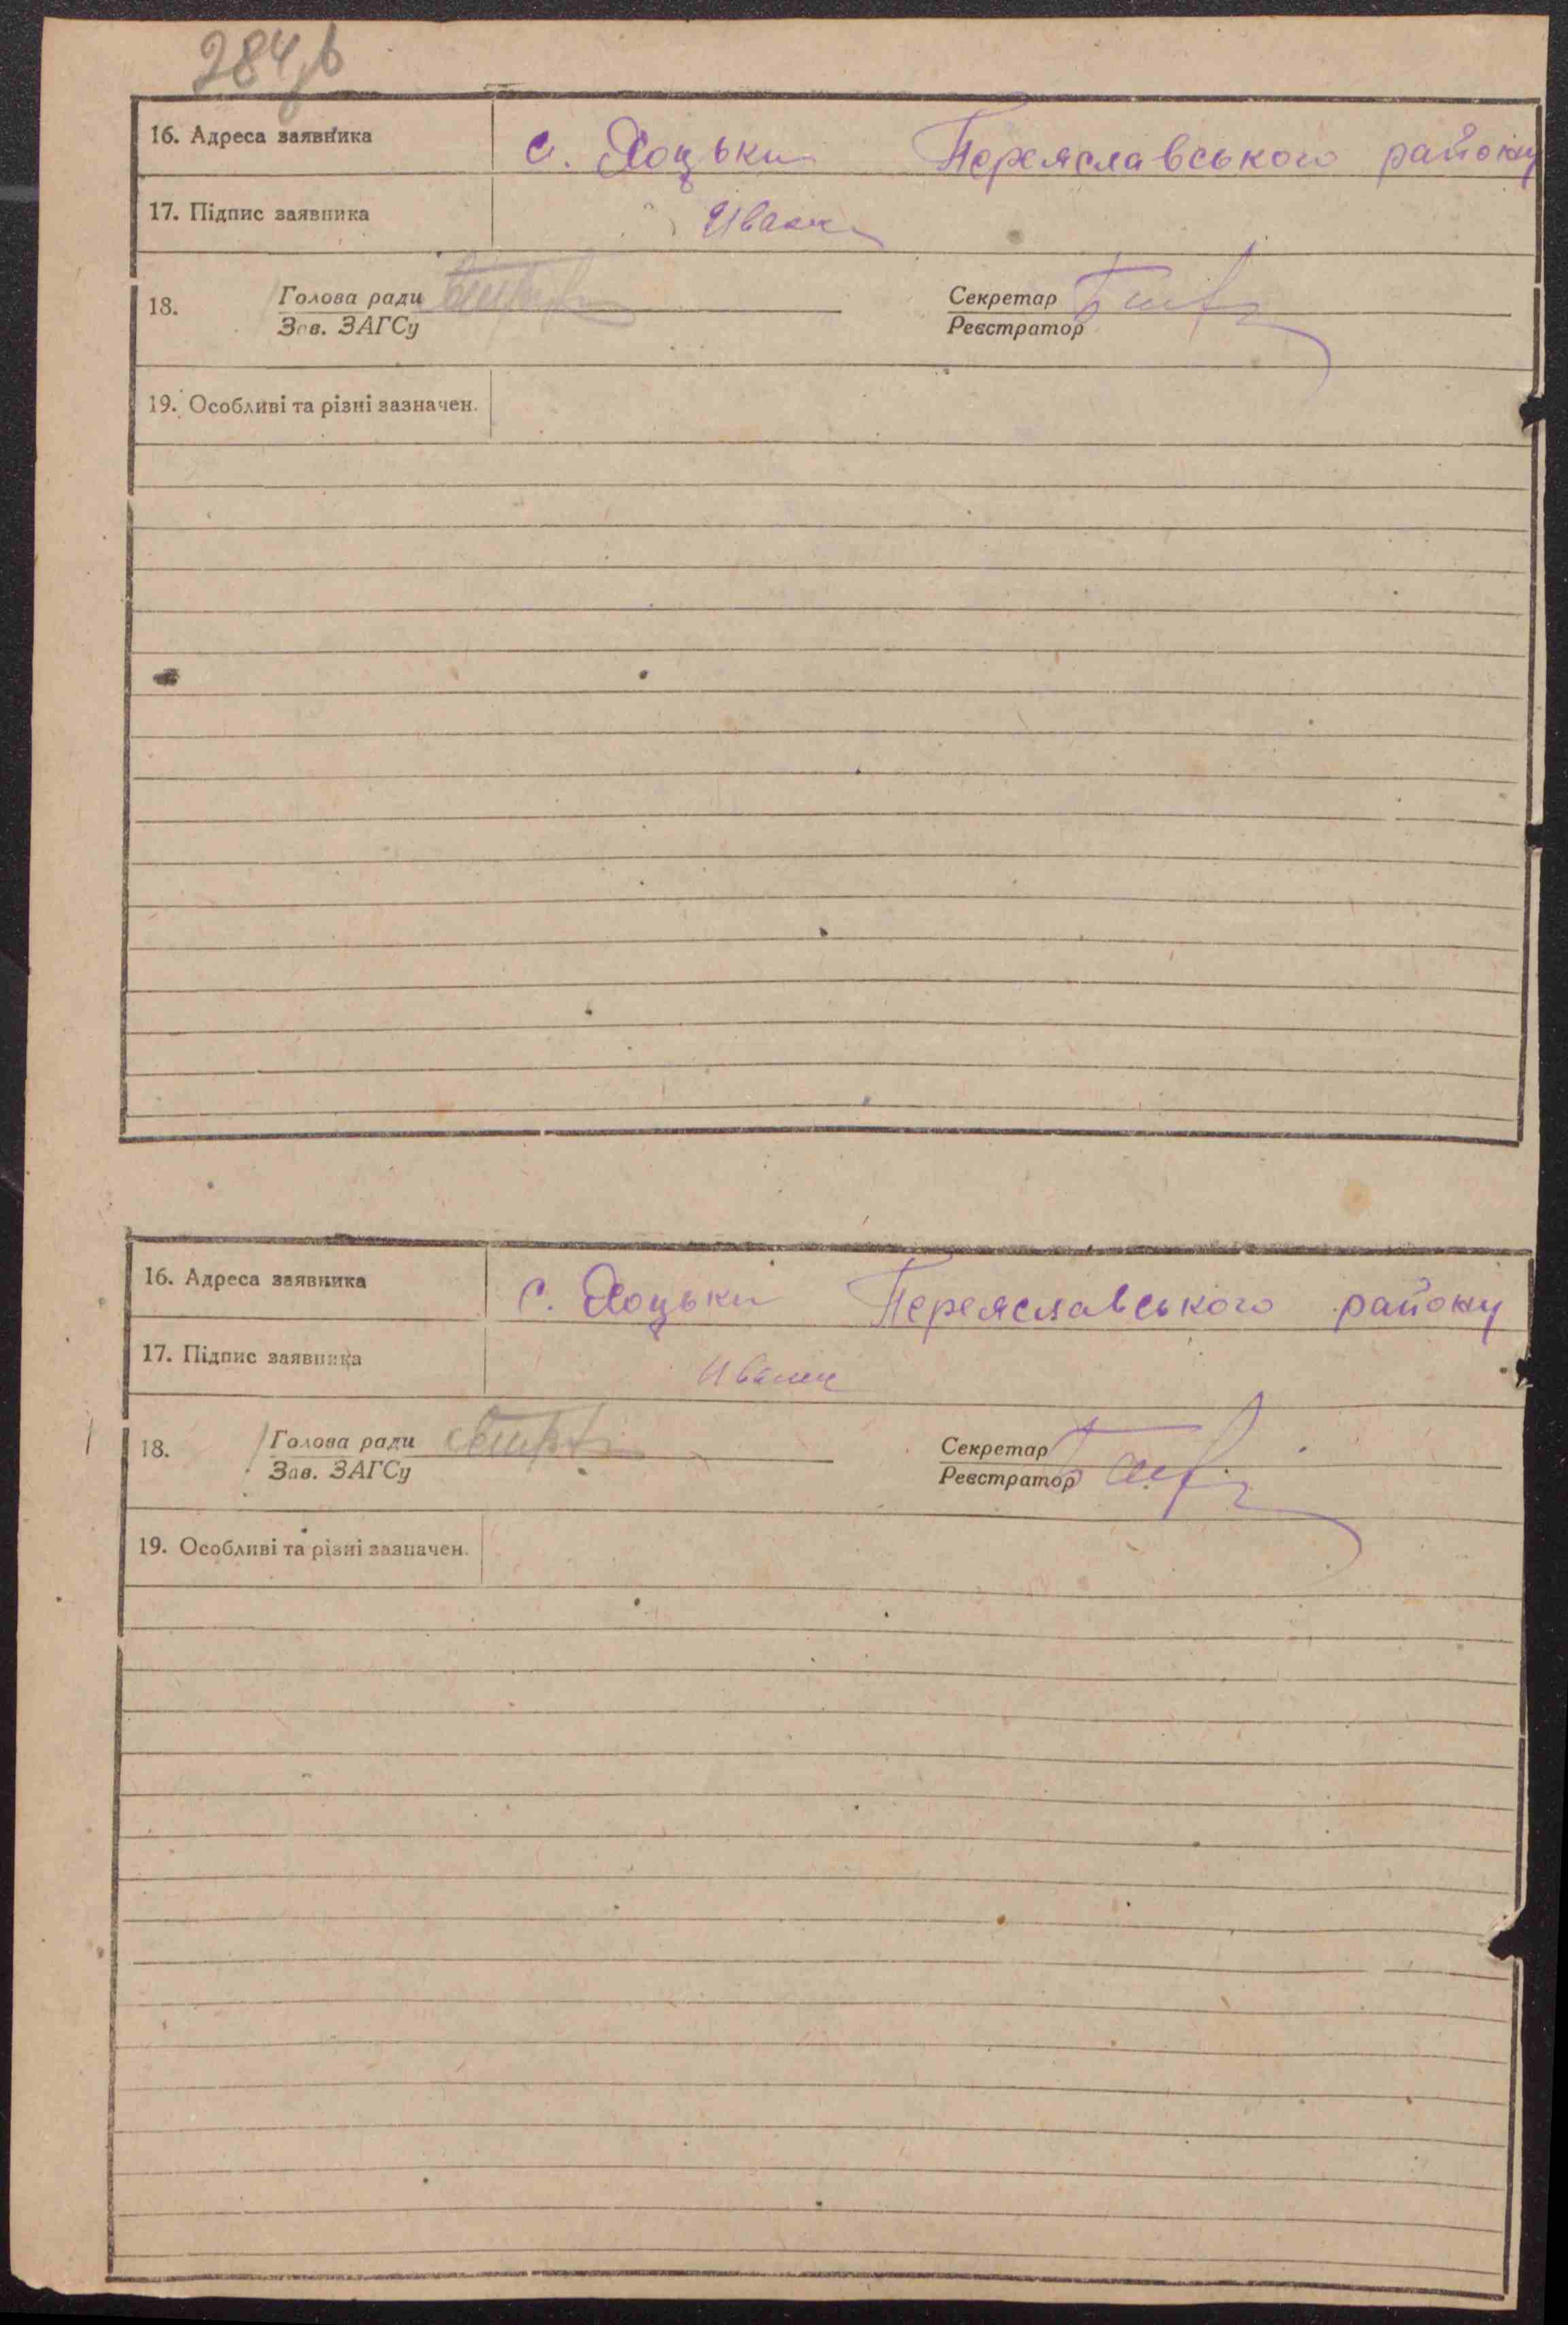 284
16. Адреса заявника с. Хоцьки Переяславського району
17. Підпис заявника
18. Голова ради Секретар
Зав. ЗАГСу Реєстратор
19. Особливі та різні зазначен.
16. Адреса заявника с. Хоцьки Переяславського району
17. Підпис заявника
18. Голова ради Секретар
Зав. ЗАГСу Реєстратор
19. Особливі та різні зазначен.